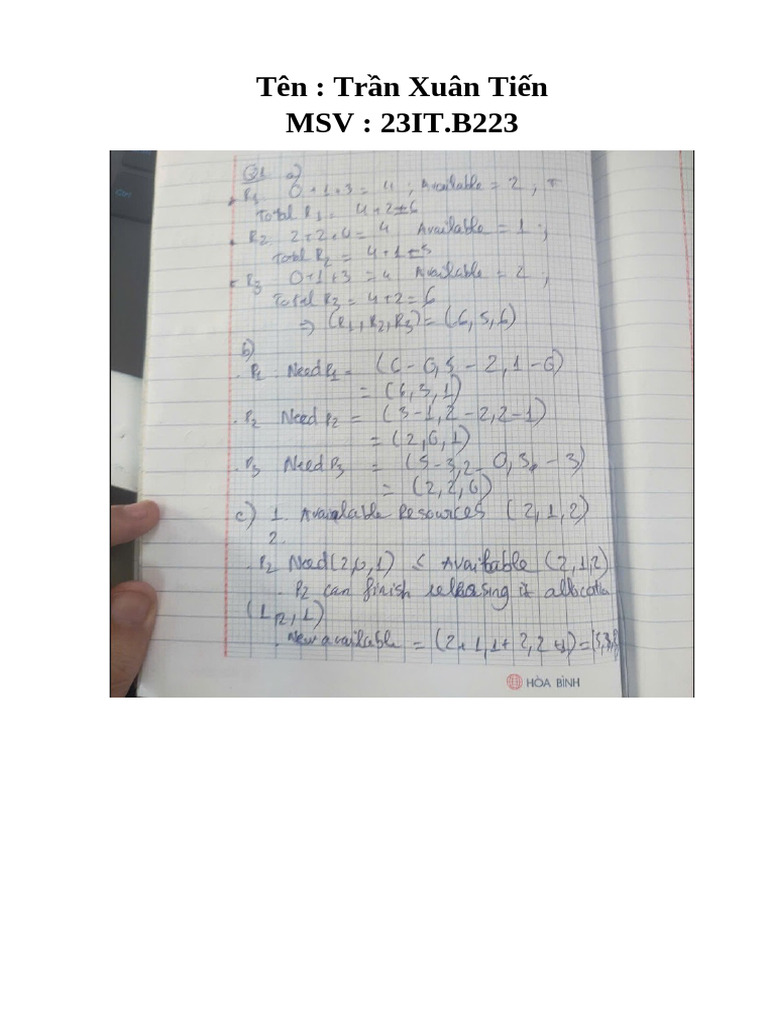 Tên : Trần Xuân Tiến
MSV : 23IT.B223
Q1 a)
. R1 0+1+3= 4 ; Available = 2 ,
Total R1 = 4+2=6
. R2 2+2+0= 4 Available = 1 ;
Total R2 = 4+1=5
. R3 0+1+3 =4 Available = 2 ;
Total R3 = 4+2=6
⇒ (R1, R2, R3) = (6, 5, 6)
b)
. P1 . Need P1 = (6-0, 5-2, 1-0)
= (6, 3, 1)
. P2 Need P2 = (3-1, 2-2, 2-1)
= (2, 0, 1)
. P3 Need P3 = (5-3, 2-0, 3-3)
= (2, 2, 0)
c) 1. Available Resources (2, 1, 2)
2.
. P2 Need (2, 0, 1) ≤ Available (2, 1, 2)
. P2 can finish releasing it
(1, 2, 1)
. New available = (2+1, 1+2, 2+1) =
HÒA BÌNH